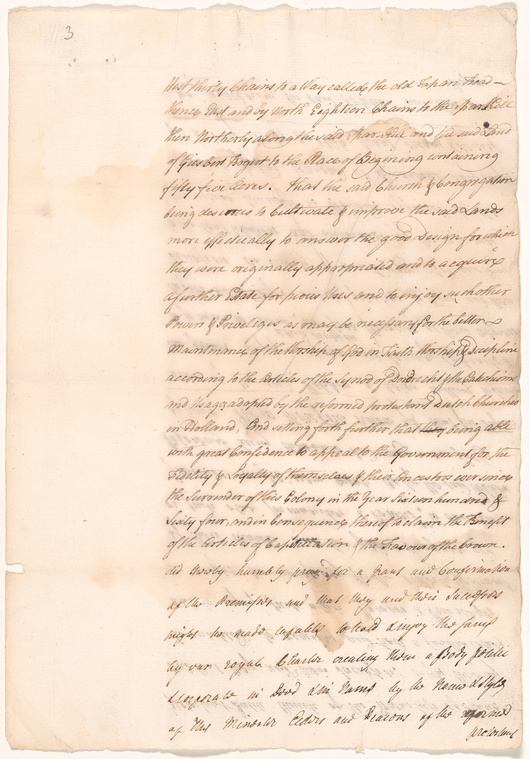 3
West thirty Chains to a Way called the old Tapan Road
thence East and by North Eighteen Chains to the Sparkill
then Northerly along the said Spar Kill and the said Land
of to the Place of Begining containing
fifty five Acres. That the said Church & Congregation
being desirous to Cultivate & improve the said Lands
more effectually to answer the good Design for which
they were originally appropriated and to acquire
a further Estate for pious Uses and to injoy such other
Powers & Priveleges as may be necessary for the better
Maintenance of the Worship of God in Faith Worship & Discipline
according to the Articles of the Synod of Dordrecht & the Catechism
and Usage adopted by the reformed protestant Dutch Churches
in Holland, And setting forth further that being able
with great Confidence to appeal to the Government for the
Fidelity & Loyalty of themselves & their Ancestors ever since
the Surrender of this Colony in the Year Sixteen hundred &
Sixty four, and in Consequence thereof to claim the Benefit
of the Articles of Capitulation & the Favour of the Crown.
did thereby humbly pray for a Grant and Confirmation
of the Premisses and that they and their Successors
might be made capable to hold & injoy the same
by our royal Charter creating them a Body Politic
& Corporate in Deed & in Name by the Name & Style
of the Minister Elders and Deacons of the reformed
protestant